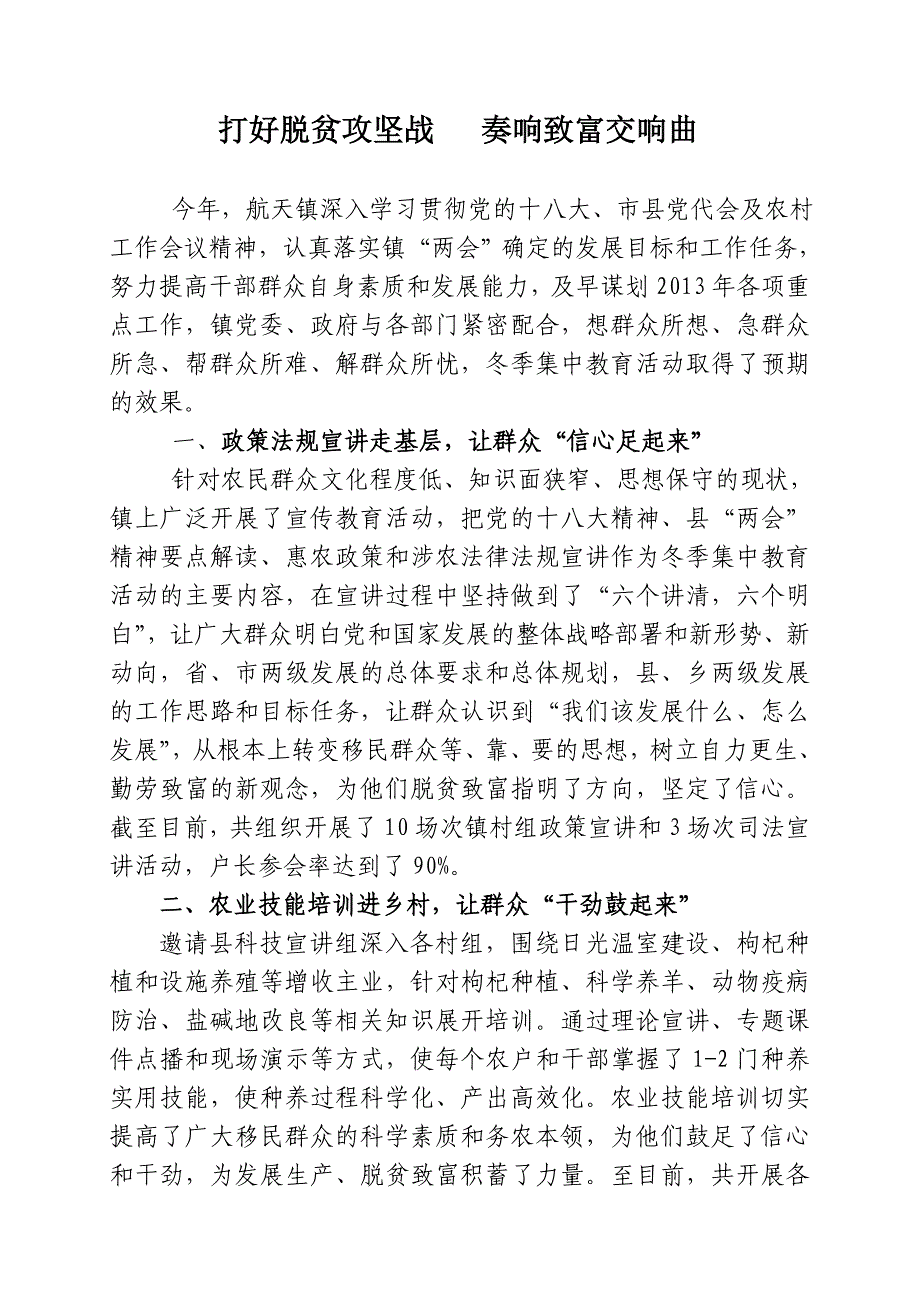 打好脱贫攻坚战   奏响致富交响曲
今年，航天镇深入学习贯彻党的十八大、市县党代会及农村
工作会议精神，认真落实镇“两会”确定的发展目标和工作任务，
努力提高干部群众自身素质和发展能力，及早谋划 2013 年各项重
点工作，镇党委、政府与各部门紧密配合，想群众所想、急群众
所急、帮群众所难、解群众所忧，冬季集中教育活动取得了预期
的效果。
一、政策法规宣讲走基层，让群众“信心足起来”
针对农民群众文化程度低、知识面狭窄、思想保守的现状，
镇上广泛开展了宣传教育活动，把党的十八大精神、县“两会”
精神要点解读、惠农政策和涉农法律法规宣讲作为冬季集中教育
活动的主要内容，在宣讲过程中坚持做到了“六个讲清，六个明
白”，让广大群众明白党和国家发展的整体战略部署和新形势、新
动向，省、市两级发展的总体要求和总体规划，县、乡两级发展
的工作思路和目标任务，让群众认识到“我们该发展什么、怎么
发展”，从根本上转变移民群众等、靠、要的思想，树立自力更生、
勤劳致富的新观念，为他们脱贫致富指明了方向，坚定了信心。
截至目前，共组织开展了 10 场次镇村组政策宣讲和 3 场次司法宣
讲活动，户长参会率达到了 90%。
二、农业技能培训进乡村，让群众“干劲鼓起来”
邀请县科技宣讲组深入各村组，围绕日光温室建设、枸杞种
植和设施养殖等增收主业，针对枸杞种植、科学养羊、动物疫病
防治、盐碱地改良等相关知识展开培训。通过理论宣讲、专题课
件点播和现场演示等方式，使每个农户和干部掌握了 1-2 门种养
实用技能，使种养过程科学化、产出高效化。农业技能培训切实
提高了广大移民群众的科学素质和务农本领，为他们鼓足了信心
和干劲，为发展生产、脱贫致富积蓄了力量。至目前，共开展各